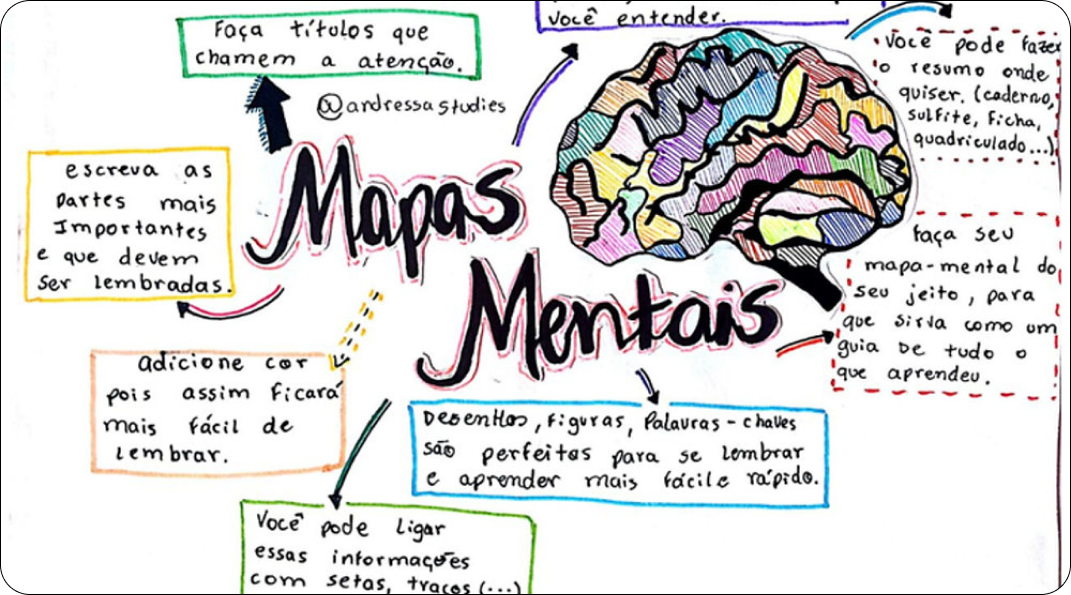 Faça títulos que
chamem a atenção.
você entender.
Você pode fazer
o resumo onde
quiser. (caderno,
sulfite, ficha,
quadriculado...)
@andressastudies
Mapas
Mentais
escreva as
partes mais
Importantes
e que devem
ser lembradas.
faça seu
mapa-mental do
seu jeito, para
que sirva como um
guia de tudo o
que aprendeu.
adicione cor
pois assim ficará
mais fácil de
lembrar.
Desenhos, figuras, palavras-chaves
são perfeitos para se lembrar
e aprender mais fácil e rápido.
Você pode ligar
essas informações
com setas, traços (...)